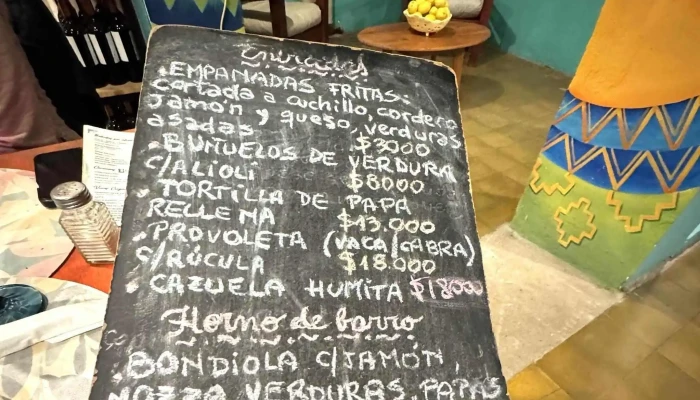 Entradas
.EMPANADAS FRITAS:
Cortada a cuchillo, cordero
Jamón y queso, verduras
asadas $3000
.BUÑUELOS DE VERDURA
C/ALIOLI $8000
.TORTILLA DE PAPA
RELLENA $13.000
.PROVOLETA (VACA/CABRA)
C/RÚCULA $18.000
.CAZUELA HUMITA $18000
Horno de barro
.BONDIOLA C/JAMÓN,
MOZZA VERDURAS, PAPAS